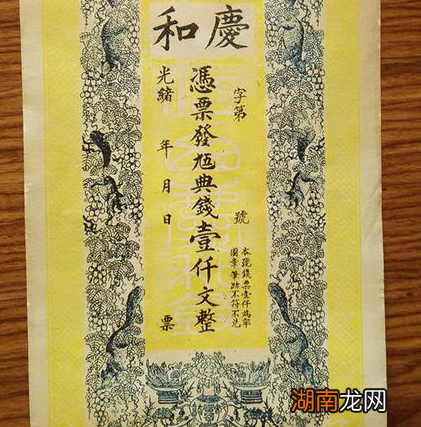 慶和
字第 號
本號錢票壹仟為率
圖章筆跡不符不兌
憑票發典錢壹仟文整
光緒 年 月 日 票
湖南龙网